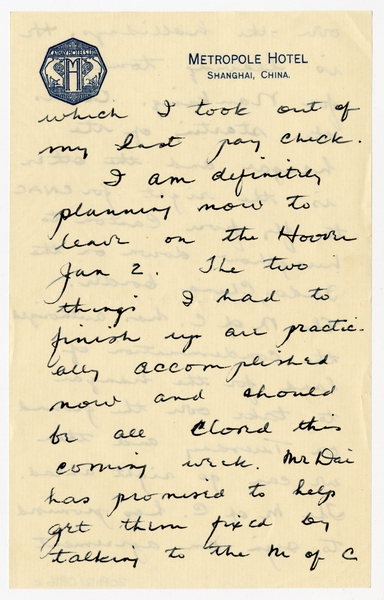 CATHAY HOTELS LTD
M H
METROPOLE HOTEL
SHANGHAI, CHINA.
which I took out of
my last pay check.
I am definitely
planning now to
leave on the Hoover
Jan 2. The two
things I had to
finish up are practic-
ally accomplished
now and should
be all closed this
coming week. Mr Dai
has promised to help
get them fixed by
talking to the M of C